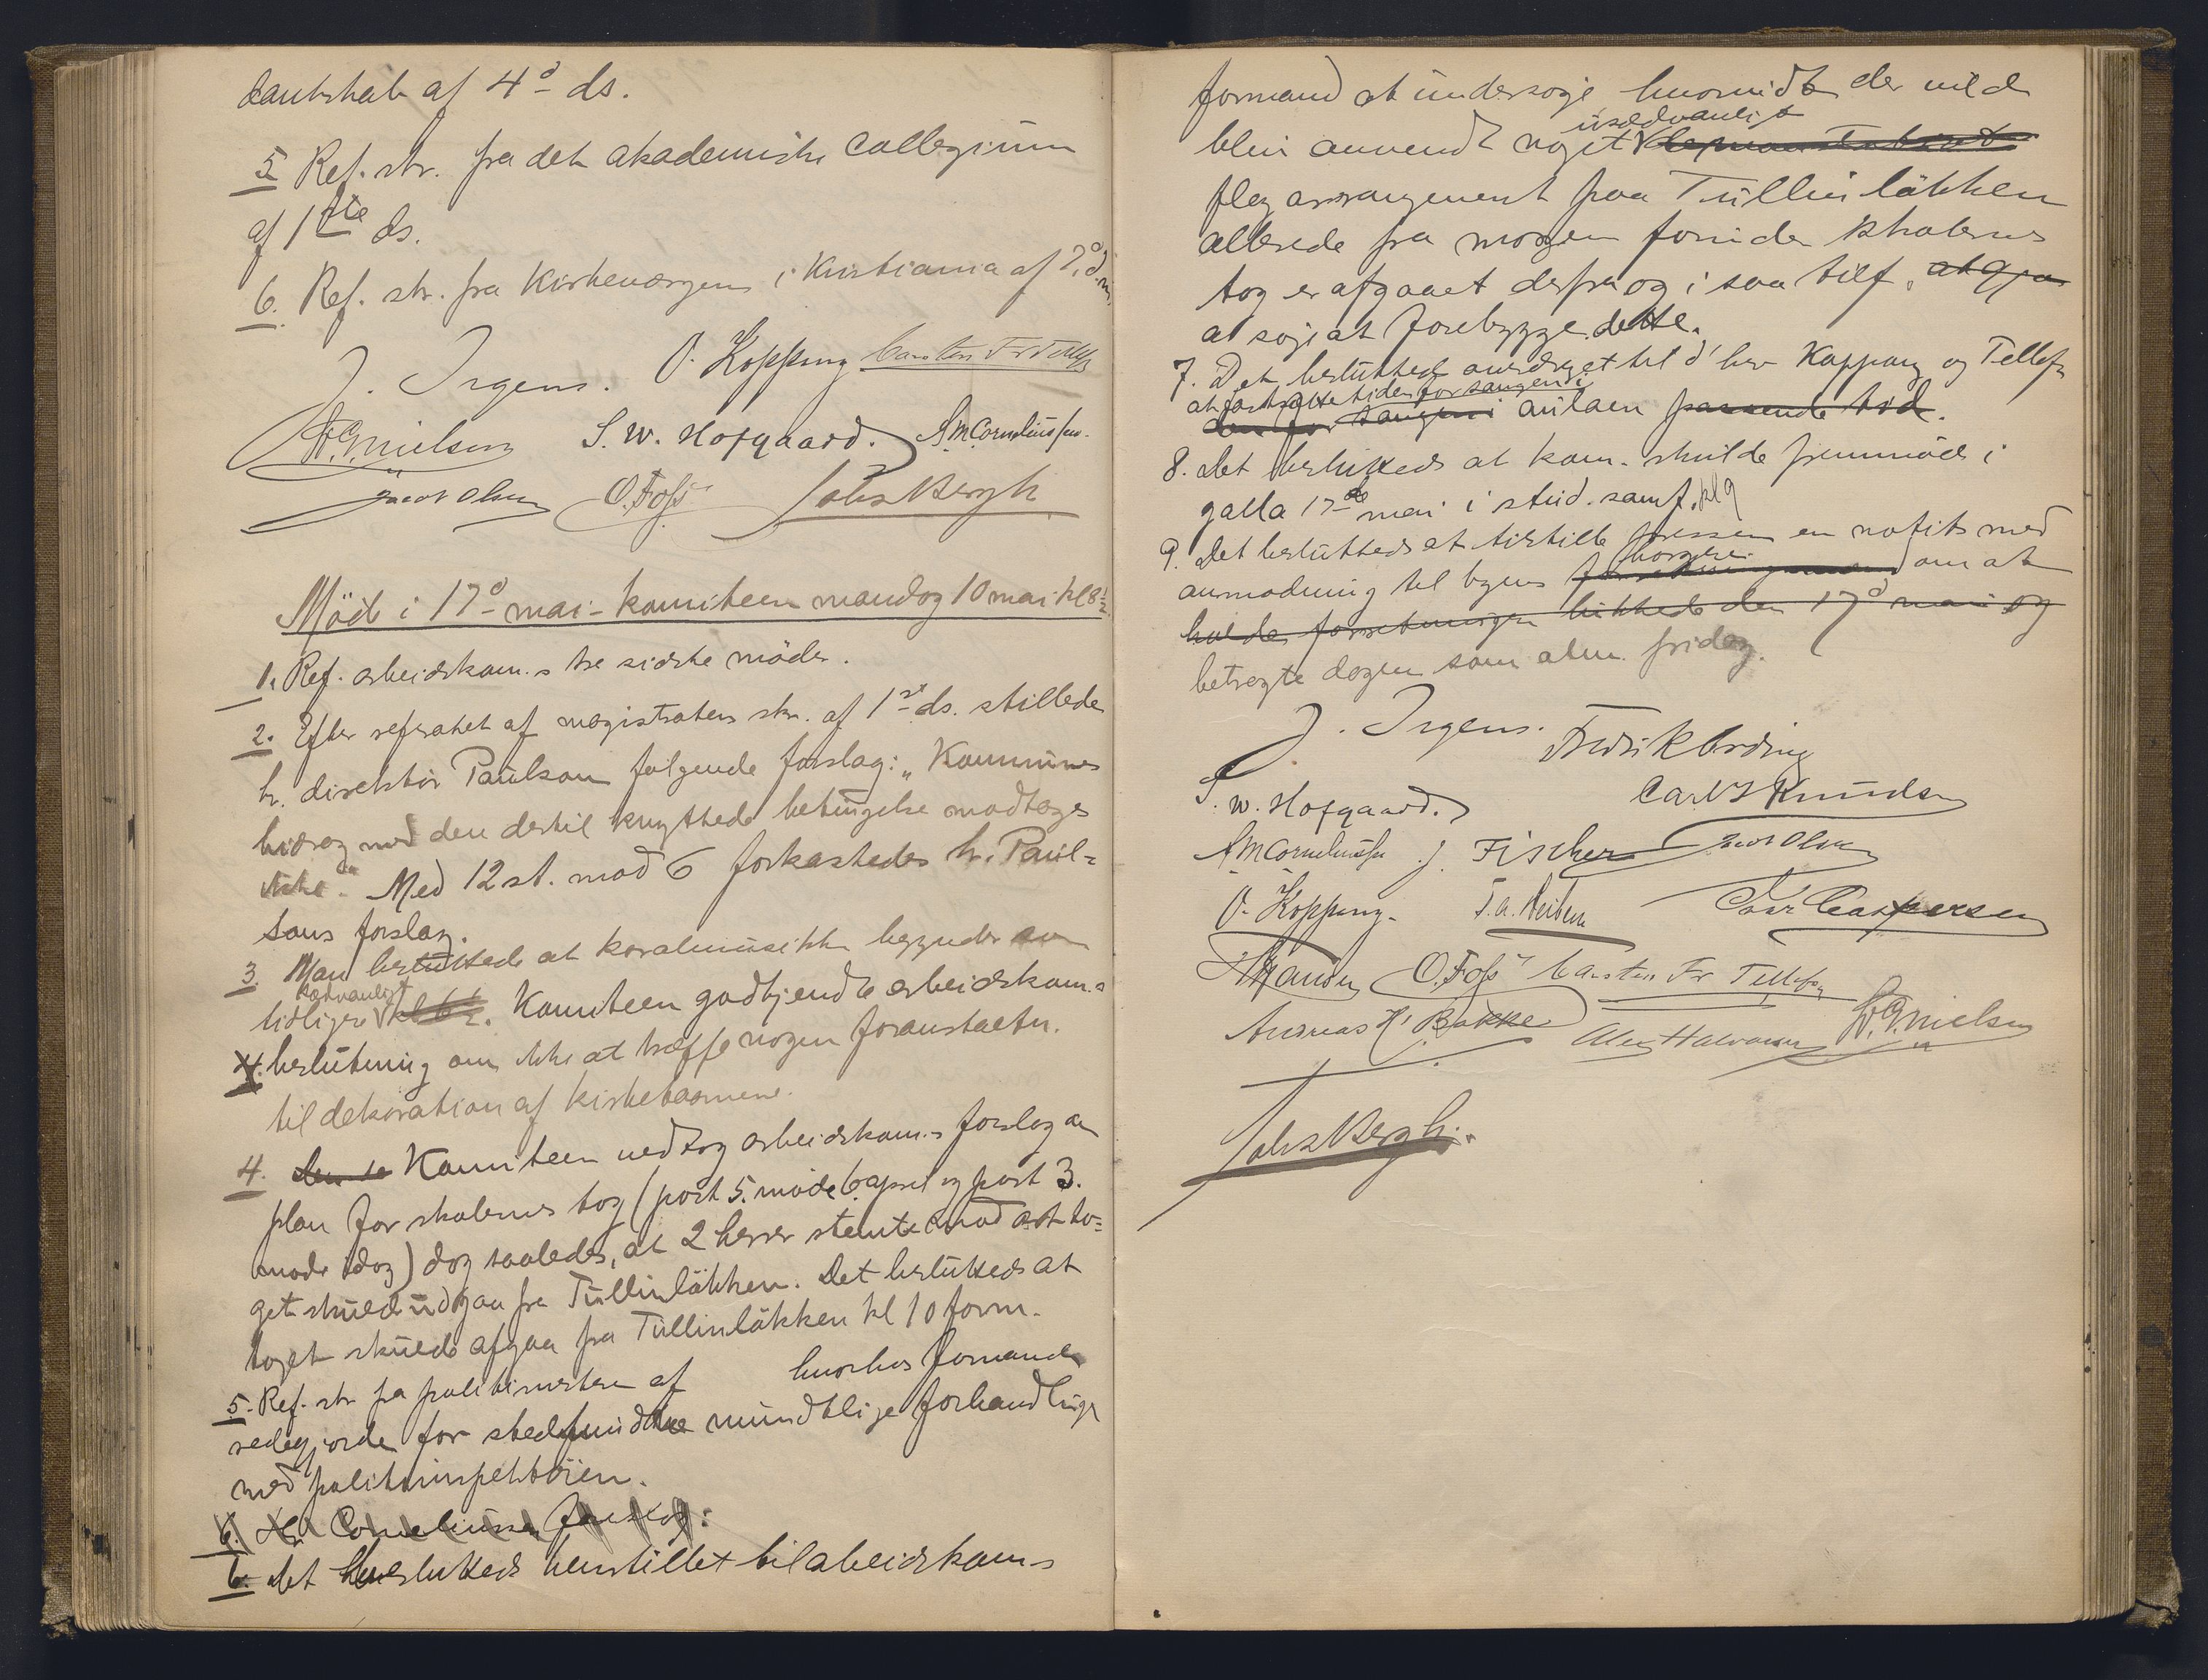 af 4de ds.
5. Ref. skr. fra det akademiske collegium
af 1ste ds.
6. Ref. skr. fra kirkeværgen i Kristiania af
J. Irgens. O. Koppang Carsten Fr Tellefs
W. G. Nielsen S. W. Hofgaard. A M Corneliussen.
Jacob Olsen O. Foss Johs Bergh
Möde i 17de mai-komiteen mandag 10 mai kl 8½
1. Ref. arbeidskom.s tre sidste möder.
2. Efter referatet af magistratens skr. af 1ste ds. stillede
hr. direktör Paulson følgende forslag: „Kommunens
bidrag med den dertil knyttede betingelse modtages
ikke." Med 12 st. mod 6 forkastedes hr. Paul-
sons forslag.
3. Man besluttede at koralmusikken begynder som
sædvanligt
tidligere kl 6½. Komiteen godkjendte arbeidskom.s
4. beslutning om ikke at træffe nogen foranstaltn.
til dekoration af kirketaarnene.
4. Komiteen vedtog arbeidskom.s forslag om
plan for skolernes tog (post 5. möde 6 april og post 3.
möde idag) dog saaledes, at 2 herrer stemte mod at to-
get skulde udgaa fra Tullinlökken. Det besluttedes at
toget skulde afgaa fra Tullinlökken kl 10 form.
5. Ref. skr fra politimesteren af hvorhos formanden
redegjorde for stedfundne mundtlige forhandlinger
med politiinspektören.
6. Hr. Corneliussen foreslog:
6. Det besluttedes henstillet til arbeidskom.s
formand at undersøge hvorvidt der vilde
usædvanligt
blive anvendt noget demonstrativt
flag arrangement paa Tullinlökken
allerede fra morgen forinden skolernes
tog er afgaaet derfra og i saa tilf. at gjøre
at søge at forebygge dette.
7. Det besluttedes overdraget til d'hrr Koppang og Tellefsen
at fastsætte tiden for sangen i
den for sangen i aulaen passende tid.
8. Det besluttedes at kom. skulde fremmöde i
galla 17de mai i stud. samf. kl 9
9. Det besluttedes at tilstille pressen en notits med
borgere
anmodning til byens om at
holde forretningen lukkede den 17de mai og
betragte dagen som alm. fridag.
J. Irgens. Fredrik Ording
S. W. Hofgaard. Carl S Knudsen
A M Corneliussen J. Fischer Jacob Olsen
O. Koppang. T. A. Heiberg Caspersen
H Hansen O. Foss Carsten Fr Tellefsen
Andreas H. Bakke Alex Halvorsen W. G. Nielsen
Johs Bergh.